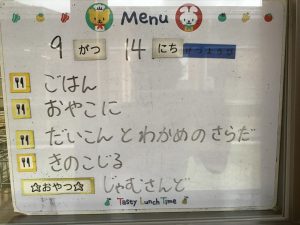 Menu
9 がつ 14 にち げつようび
ごはん
おやこに
だいこんとわかめのさらだ
きのこじる
☆おやつ☆ じゃむさんど
Tasty Lunch Time